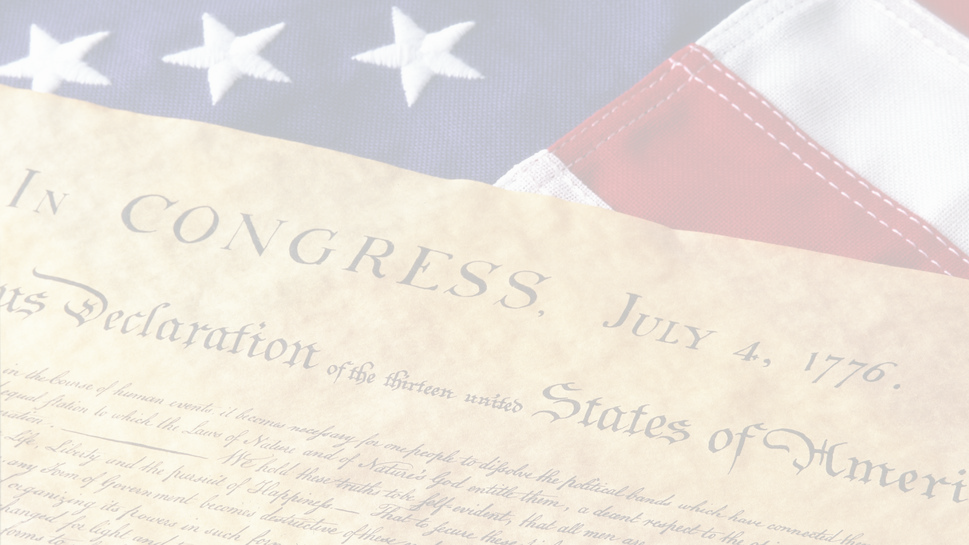 In CONGRESS, July 4, 1776.
us Declaration of the thirteen united States of Ameri
in the Course of human events, it becomes necessary for one people to dissolve the political bands which have connected them
equal station to which the Laws of Nature and of Nature's God entitle them, a decent respect to the
We hold these truths to be self-evident, that all men are
Life, Liberty and the pursuit of Happiness— That to secure these
any Form of Government becomes destructive of these
organizing its powers in such form
hanged for light and
forms to